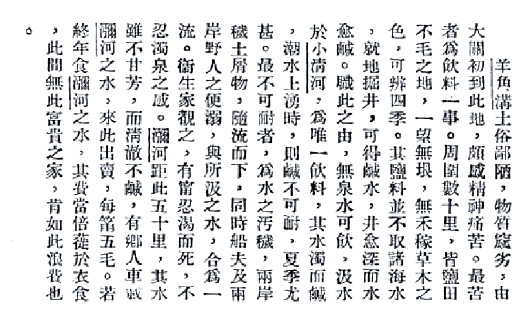 羊角溝土俗鄙陋，物質窳劣，由
大關初到此地，頗感精神痛苦。最苦
者爲飲料一事。周圍數十里，皆鹽田
不毛之地，一望無垠，無禾稼草木之
色，可辨四季。其鹽料並不取諸海水
，就地掘井，可得鹹水，井愈深而水
愈鹹。職此之由，無泉水可飲，汲水
於小清河，爲唯一飲料，其水濁而鹹
，潮水上湧時，則鹹不可耐，夏季尤
甚。最不可耐者，爲水之汚穢，兩岸
穢土屑物，隨流而下。同時船夫及兩
岸野人之便溺，與所汲之水，合爲一
流。衞生家觀之，有甯忍渴而死，不
忍濁泉之感。瀰河距此五十里，其水
雖不甘芳，而清澈不鹹，有鄉人車載
瀰河之水，來此出賣，每筩五毛。若
終年食瀰河之水，其費當倍蓰於衣食
，此間無此富貴之家，肯如此浪費也
。